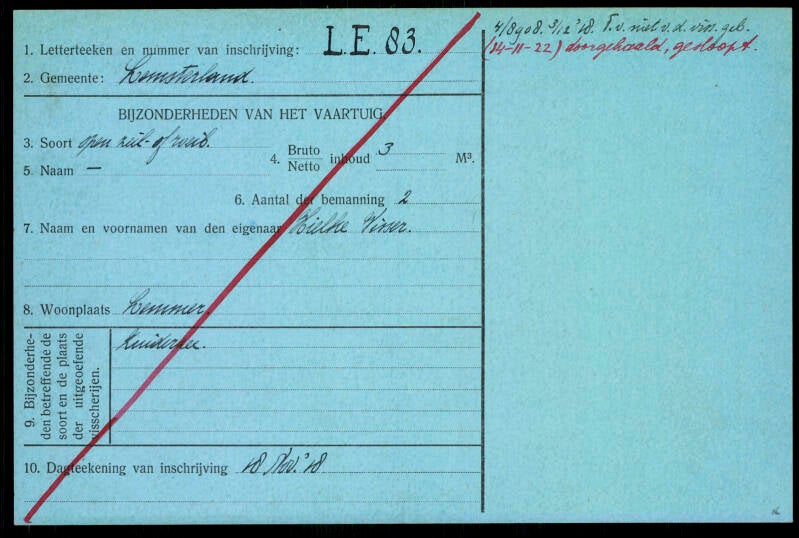 1. Letterteeken en nummer van inschrijving: L.E. 83.
2. Gemeente: Lemsterland.
BIJZONDERHEDEN VAN HET VAARTUIG.
3. Soort open zeil- of roeib.
4. Bruto Netto inhoud 3 M³.
5. Naam —
6. Aantal der bemanning 2
7. Naam en voornamen van den eigenaar Hielke Visser.
8. Woonplaats Lemmer
9. Bijzonderhe-
den betreffende de
soort en de plaats
der uitgeoefende
visscherijen.
Zuiderzee.
10. Dagteekening van inschrijving 18 Nov. '18
4/8908. 3/12 '18. T.v. niet v.d. viss. geb.
(24-11-22) doorgehaald, gesloopt.